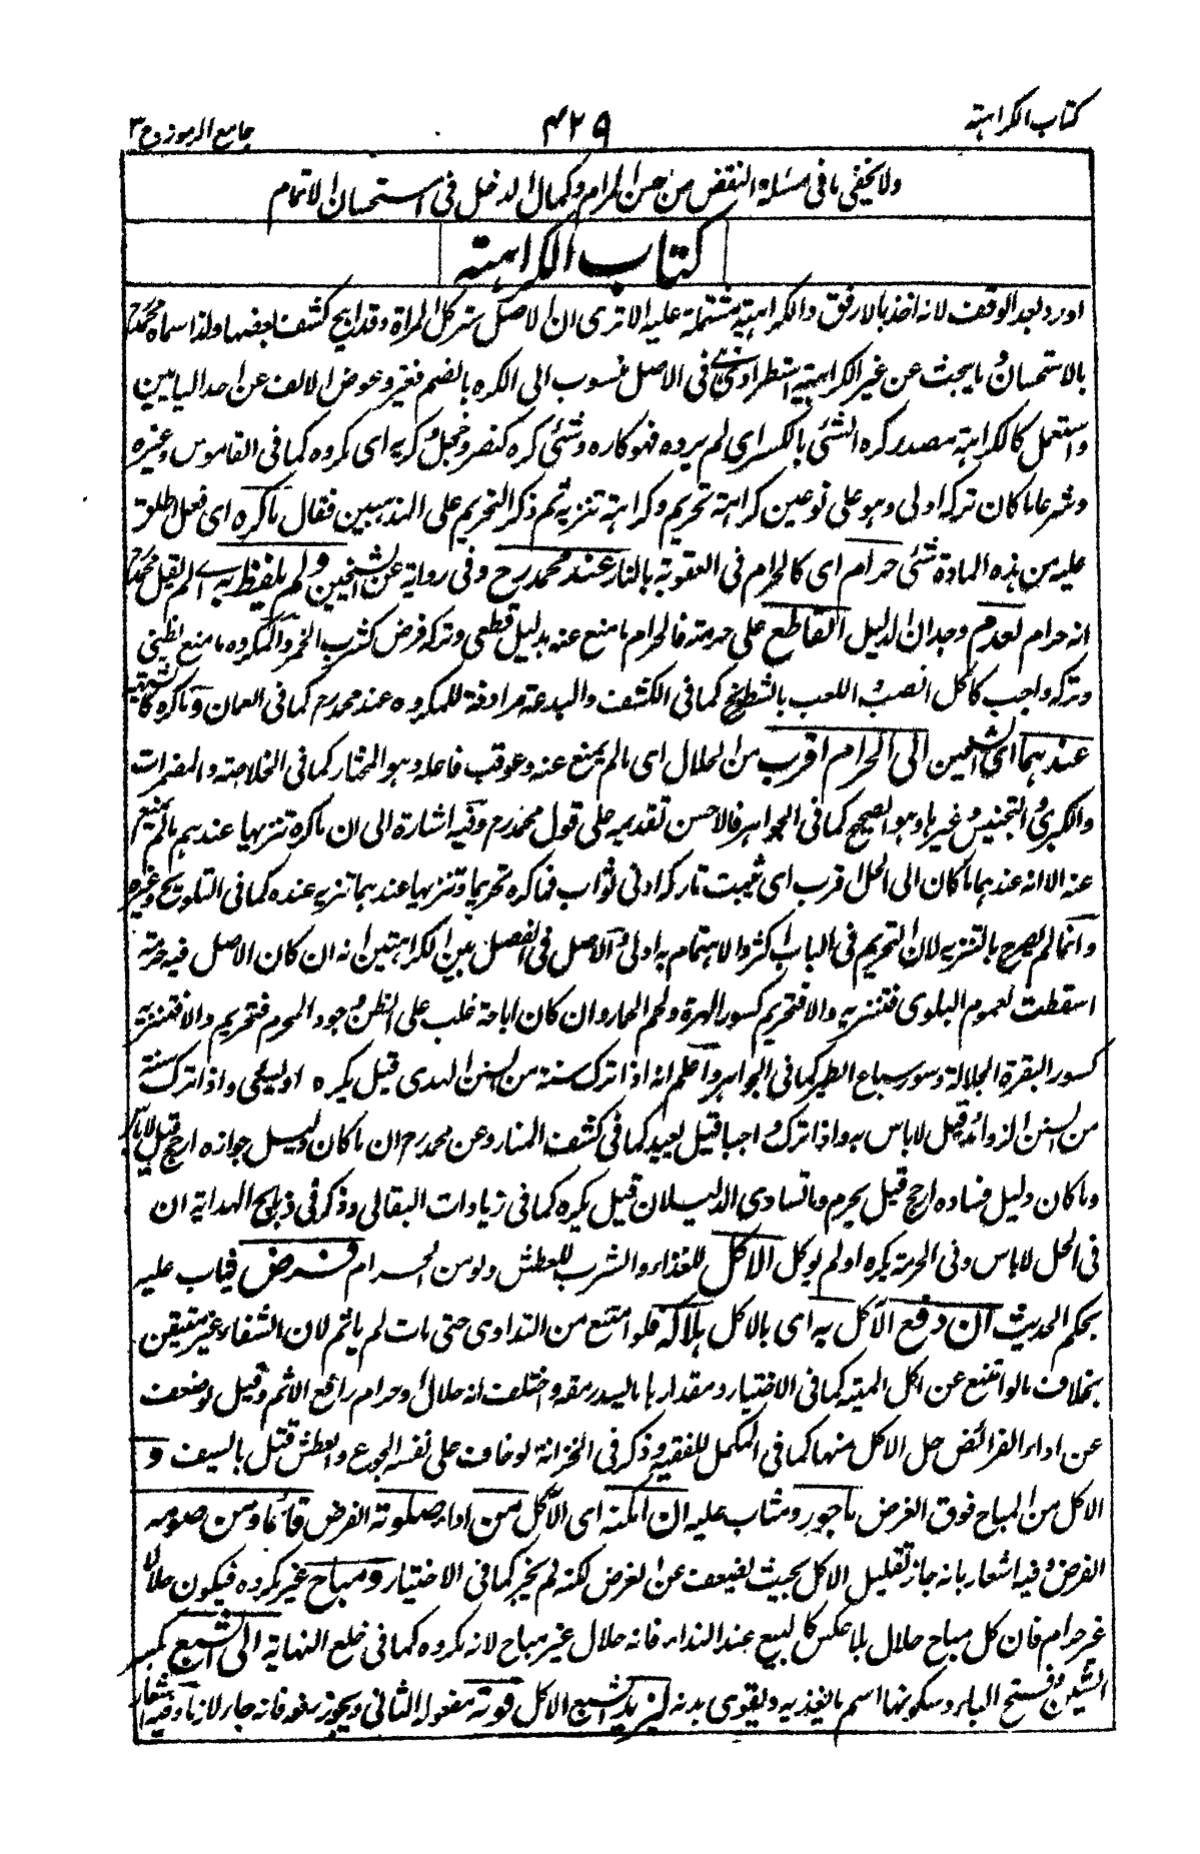 كتاب الكراهية
٤٢٩
جامع الرموز ج ٣
ولا يخفى ما فى مسئلة النقض من حسن المرام وكمال الدخل فى استحسان الاتمام
كتاب الكراهية
اورد بعد الوقف لانه اخذ بالارفق والكراهية مشتملة عليه الا ترى ان الاصل ستر كل المرأة وقد ابيح كشف بعضها ولذا سماه محمد رح
بالاستحسان وما يبحث عن غير الكراهية استطرادى وهى فى الاصل منسوب الى الكره بالضم فغير وعوض الالف عن احد اليايين
واستعمل كالكراهة مصدر كره الشئ بالكسر اى لم يرده فهو كاره وشئ كره كنصر وخجل وكريه اى مكروه كما فى القاموس وغيره
وشرعا ما كان تركه اولى وهو على نوعين كراهة تحريم وكراهة تنزيه ثم ذكر التحريم على المذهبين فقال ما كره اى فعل اطلق
عليه من هذه المادة شئ حرام اى كالحرام فى العقوبة بالنار عند محمد رح وفى رواية عن الشيخين ولم يلفظ به اى لم يقل محمد رح
انه حرام لعدم وجدان الدليل القاطع على حرمته فالحرام ما منع عنه بدليل قطعى وتركه فرض كشرب الخمر والمكروه ما منع بظنى
وتركه واجب كاكل الضب واللعب بالشطرنج كما فى الكشف والبدعة مرادفة للمكروه عند محمد رح كما فى العمان وما كره كائنا
عندهما اى الشيخين الى الحرام اقرب من الحلال اى ما لم يمنع عنه وعوقب فاعله وهو المختار كما فى الخلاصة والمضمرات
والكبرى والتجنيس وغيرها وهو الصحيح كما فى الجواهر فالاحسن تقديمه على قول محمد رح وفيه اشارة الى ان ما كره تنزيها عندهم ما لم يمنع
عنه الا انه عندهما ما كان الى الحل اقرب اى يثبت تاركه ادنى ثواب فما كره تحريما وتنزيها عندهما تنزيه عنده كما فى التلويح وغيره
وانما لم يصرح بالتنزيه لان التحريم فى الباب اكثر والاهتمام به اولى والاصل فى الفصل بين الكراهتين انه ان كان الاصل فيه حرمة
اسقطت لعموم البلوى فتنزيه والا فتحريم كسور الهرة ولحم الحمار وان كان اباحة غلب على الظن وجود المحرم فتحريم والا فتنزيه
كسور البقرة الجلالة وسور سباع الطير كما فى الجواهر واعلم انه اذا ترك سنة من سنن الهدى قيل يكره او يسيئ واذا ترك سنة
من سنن الزوائد قيل لا باس به واذا ترك واجبا قيل يعيد كما فى كشف المنار وعن محمد رح ان ما كان دليل جوازه ارجح قيل لا باس
وما كان دليل فساده ارجح قيل يحرم وما تساوى الدليلان قيل يكره كما فى زيادات البقالى وذكر فى ذبائح الهداية ان
فى الحل لا باس وفى الحرمة يكره او لم يوكل الاكل للغذاء والشرب للعطش ولو من الحرام فرض فيثاب عليه
بحكم الحديث ان دفع الاكل به اى بالاكل هلاكه فلو امتنع من التداوى حتى مات لم ياثم لان الشفاء غير متيقن
بخلاف ما لو امتنع عن اكل الميتة كما فى الاختيار ومقدارها ما يسد رمقه واختلف انه حلال او حرام رافع الاثم وقيل لو ضعف
عن اداء الفرائض حل الاكل منها كما فى المكمل للفقيه وذكر فى الخزانة لو خاف على نفسه الجوع والعطش قتل بالسيف و
الاكل من المباح فوق الفرض ماجور ومثاب عليه ان امكنه اى الآكل من اداء صلوته الفرض قائما ومن صومه
الفرض وفيه اشعار بانه جاز تقليل الاكل بحيث يضعف عن الفرض لكنه لم يجز كما فى الاختيار ومباح غير مكروه فيكون حلالا
غير حرام فان كل مباح حلال بلا عكس كالبيع عند النداء فانه حلال غير مباح لانه مكروه كما فى خلع النهاية الى الشبع بكسر
الشين وفتح الباء وسكونها اسم ما يغذيه ويقوى بدنه ليزيد الشبع الاكل قوته مفعوله الثانى ويجوز رفعه فانه جاء لازما وفيه اشعار